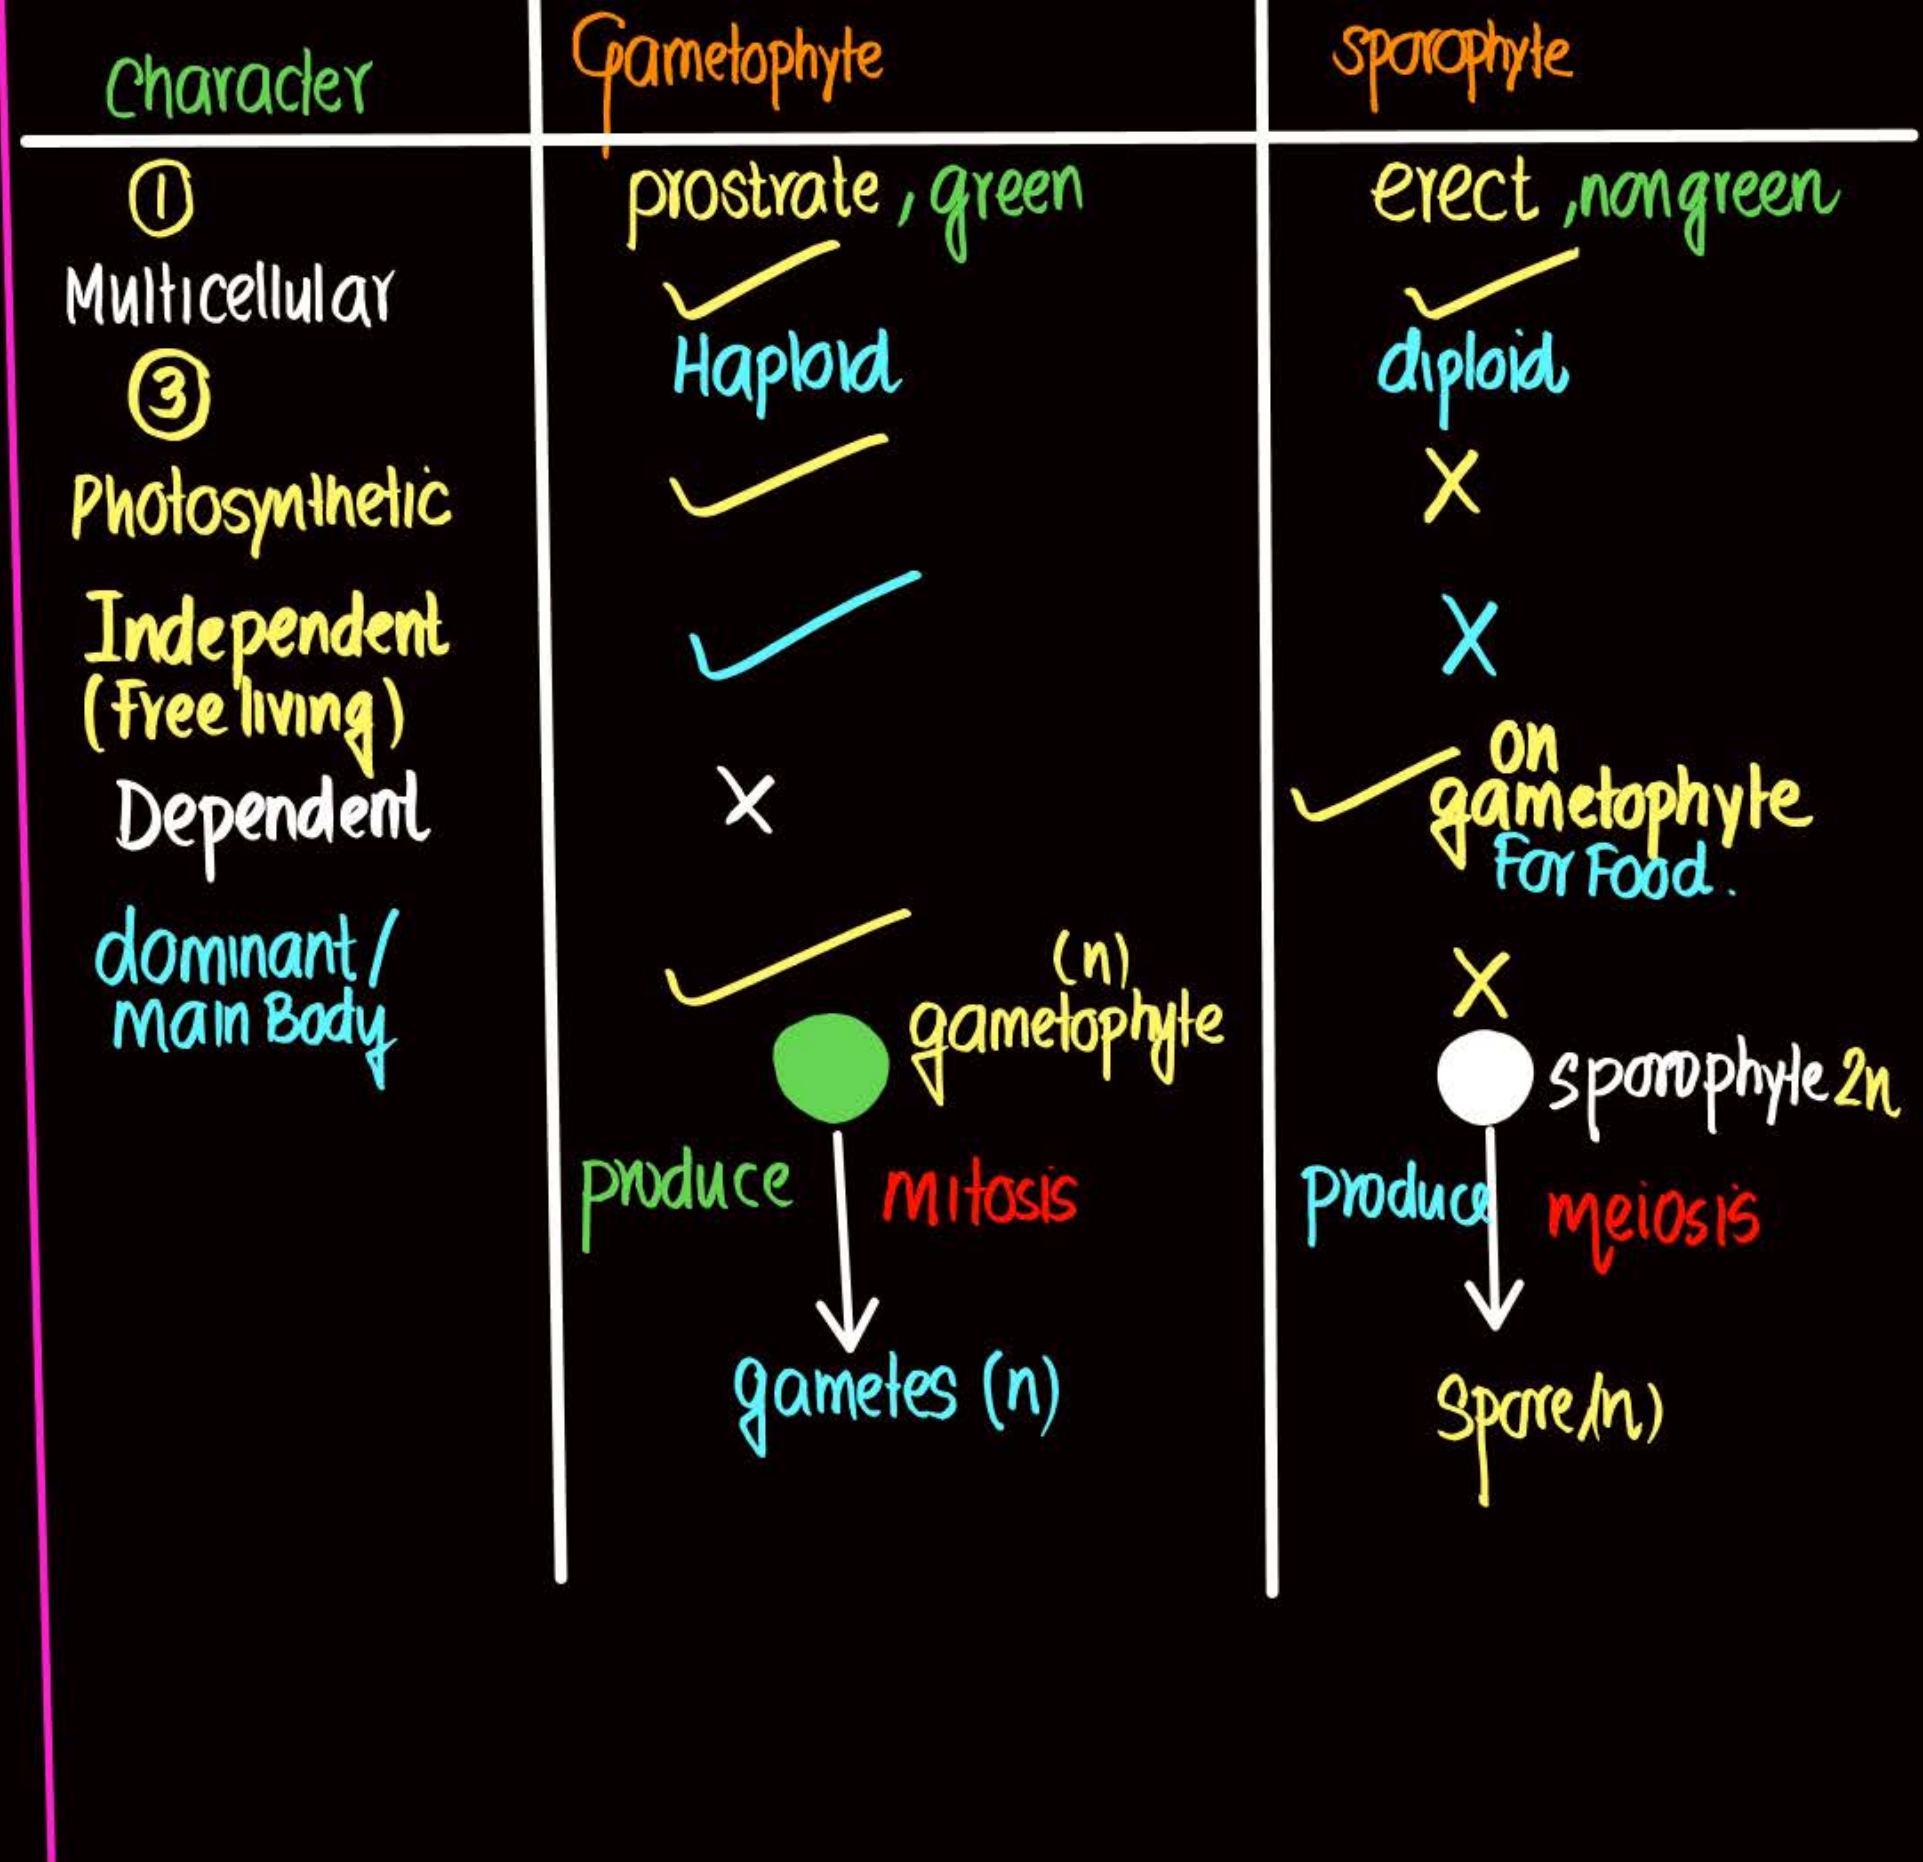 Character Gametophyte sporophyte
① prostrate, green erect, nongreen
Multicellular ✓ ✓
③ Haploid diploid
Photosynthetic ✓ X
Independent ✓ X
(Free living)
Dependent X ✓ on
gametophyte
For Food.
dominant/ ✓ X
main Body
(n)
gametophyte sporophyte 2n
produce mitosis produce meiosis
gametes (n) Spore(n)